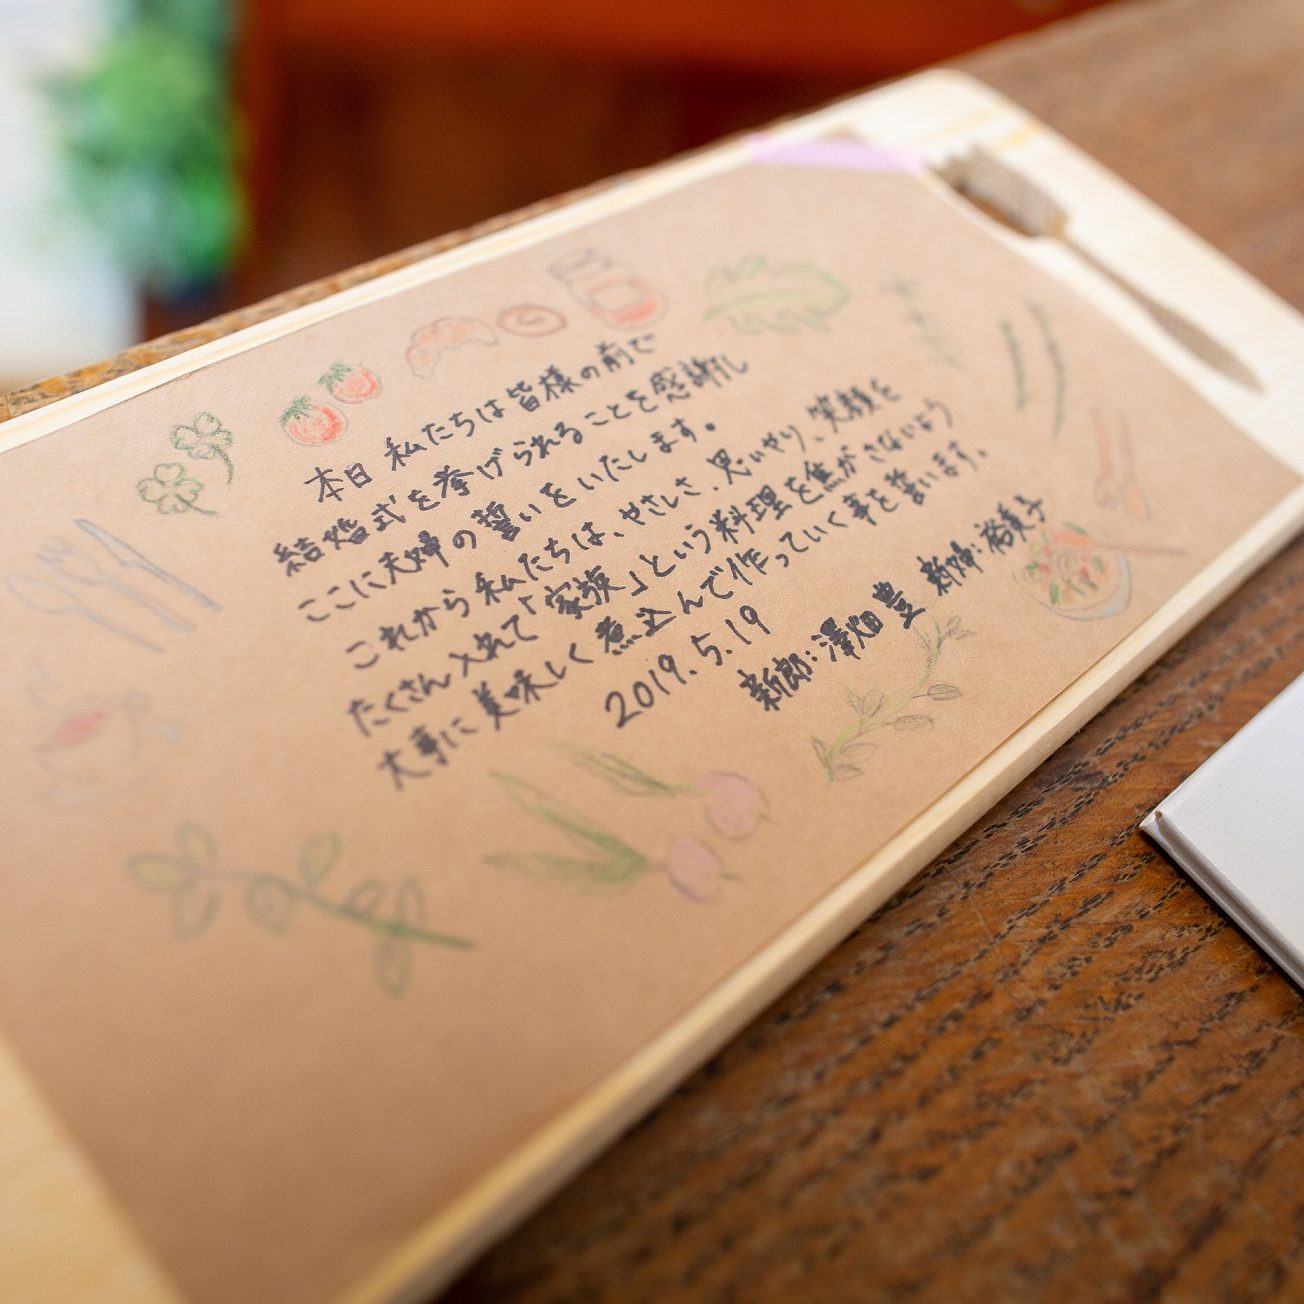 本日 私たちは皆様の前で
結婚式を挙げられることを感謝し
ここに夫婦の誓いをいたします。
これから私たちは、やさしさ、思いやり、笑顔を
たくさん入れて「家族」という料理を焦がさないよう
大事に美味しく煮込んで作っていく事を誓います。
2019.5.19
新郎:澤畑 豊 新婦:裕美子